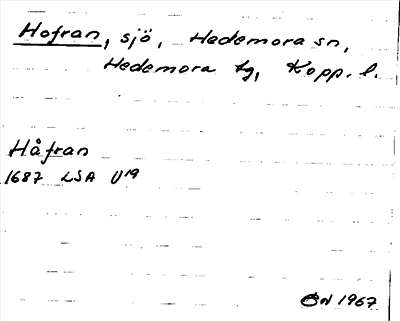 Hofran, sjö, Hedemora sn,
Hedemora tg, Kopp. l.
Håfran
1687 LSA U19
ÖN 1967